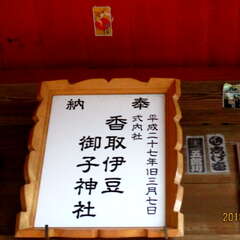 奉納
平成二十七年旧三月七日
式内社
香取伊豆
御子神社
201